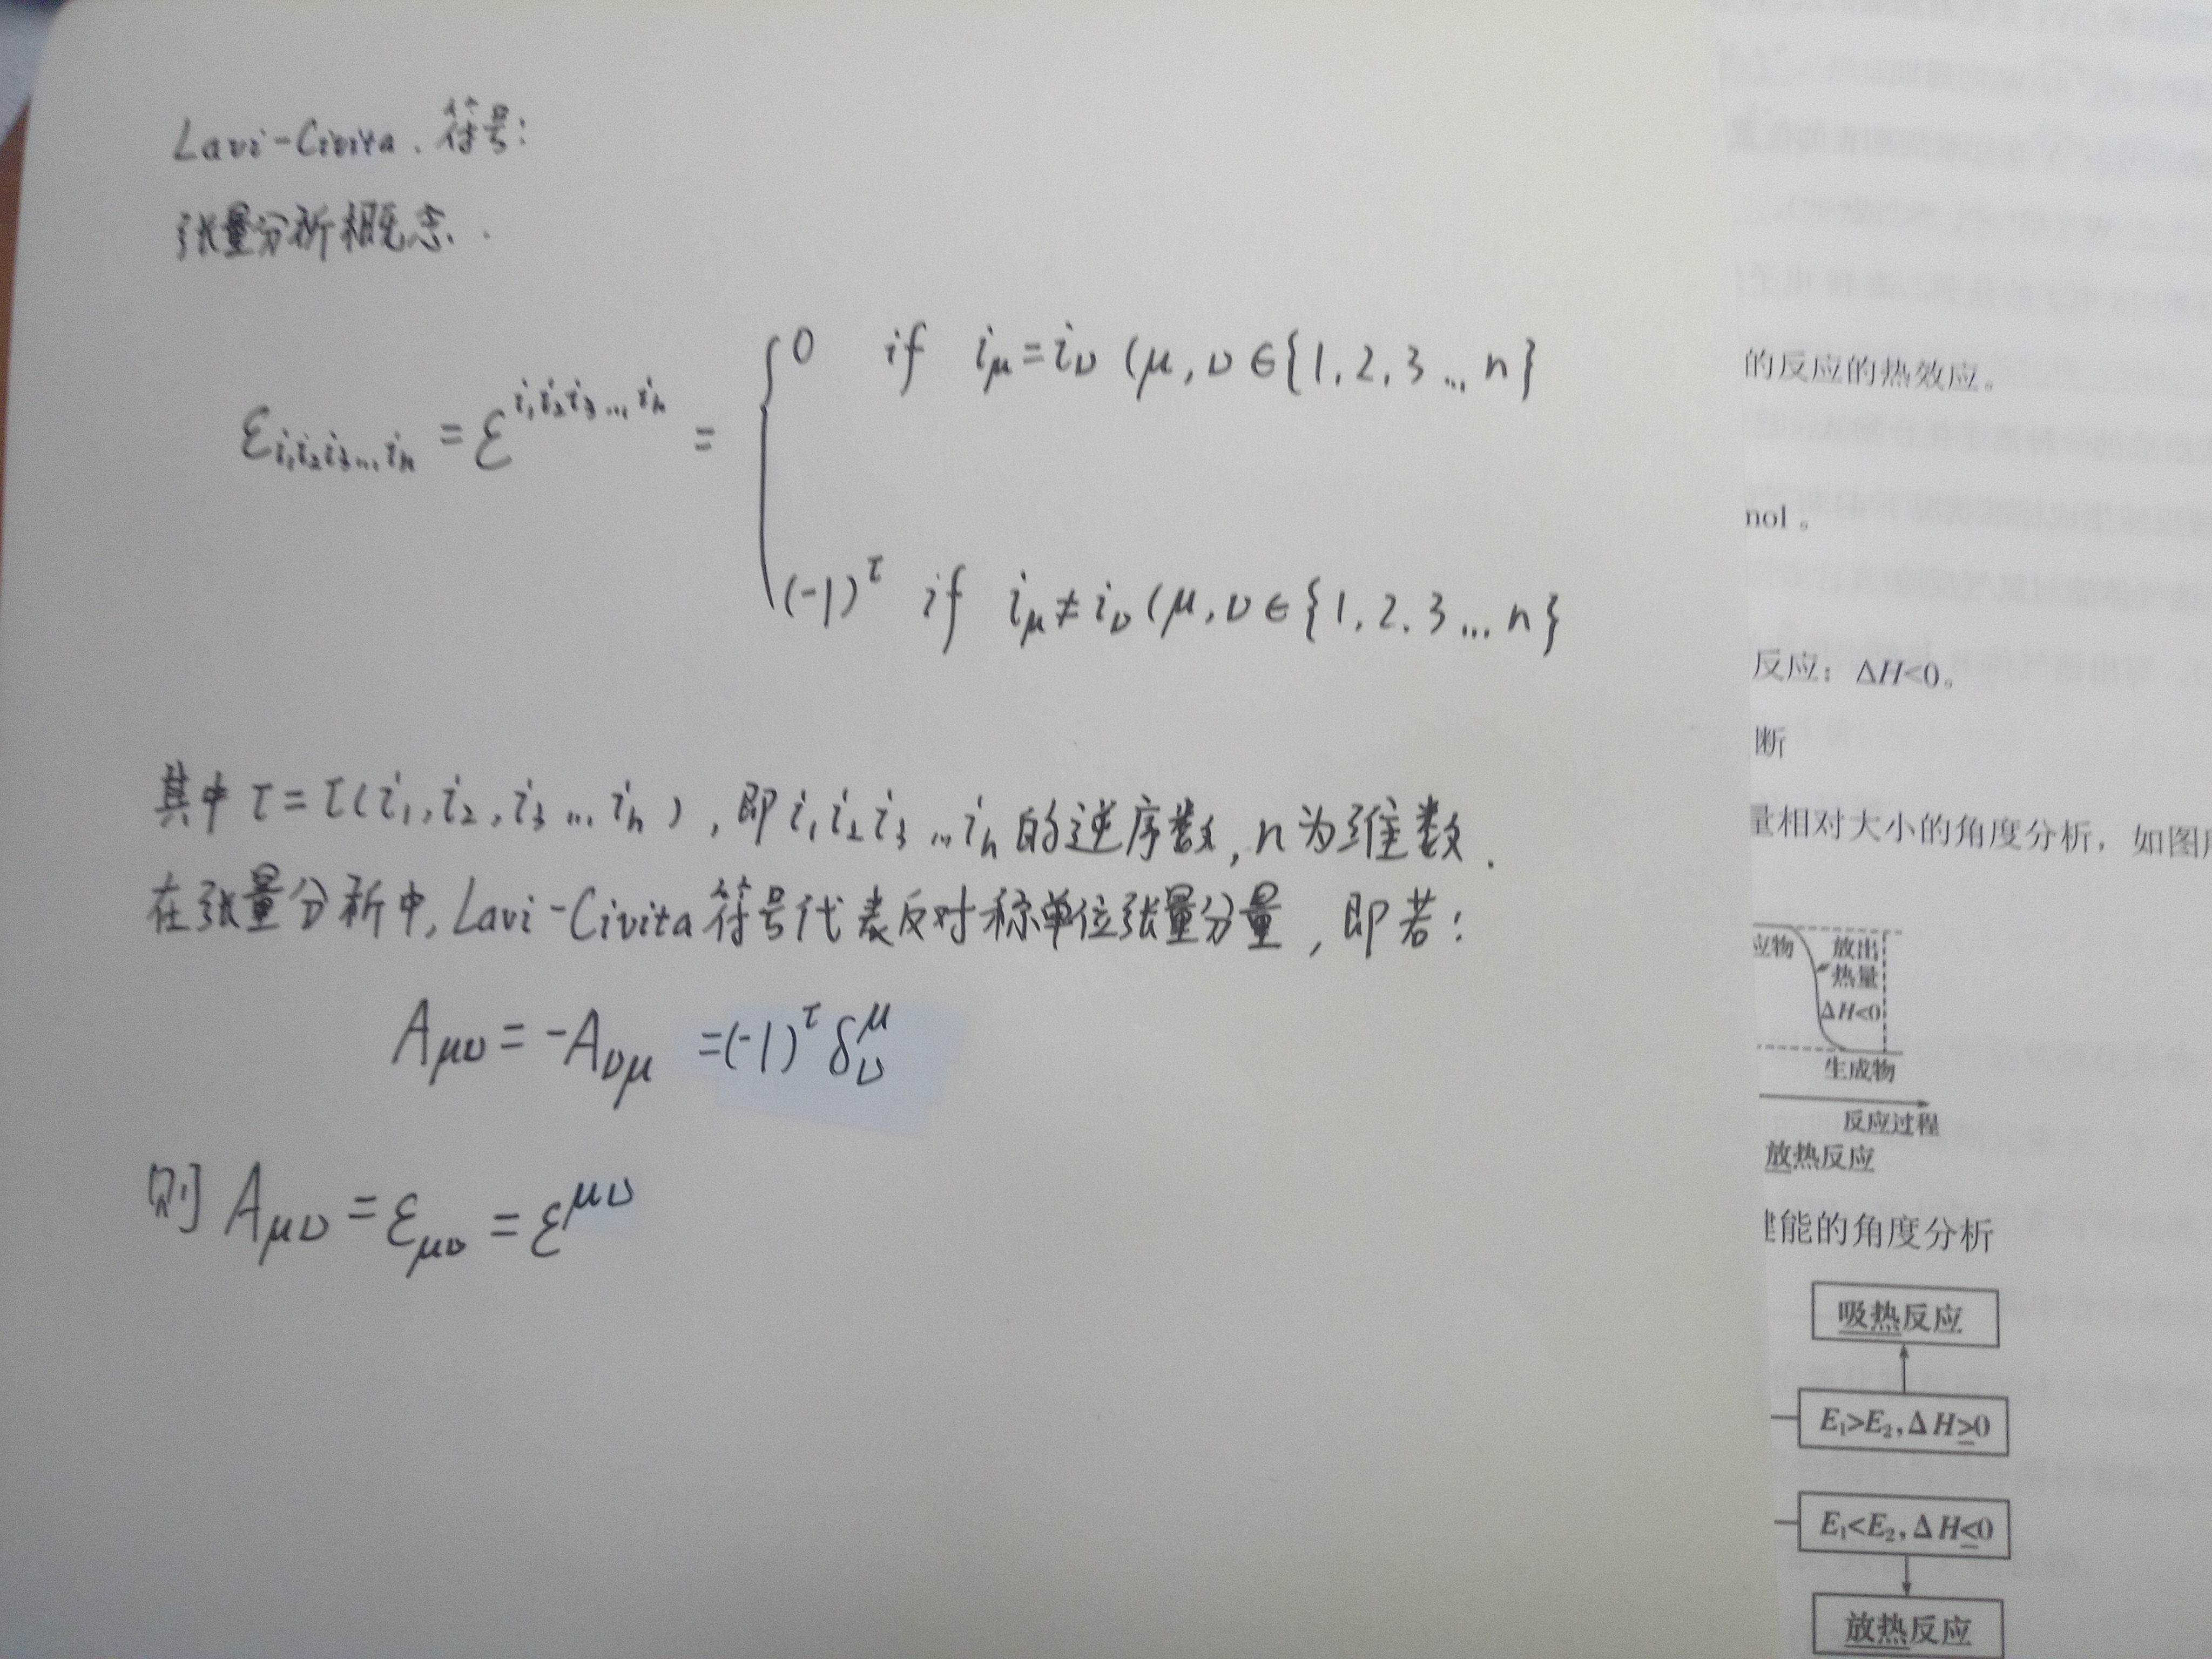 Lavi-Civita.符号：
张量分析概念.
ε_{i₁i₂i₃...iₙ} = ε^{i₁i₂i₃...iₙ} = {
0 if i_μ=i_ν (μ,ν∈{1,2,3...n}
(-1)^τ if i_μ≠i_ν (μ,ν∈{1,2,3...n}
其中τ=τ(i₁,i₂,i₃...iₙ),即i₁i₂i₃...iₙ的逆序数,n为维数.
在张量分析中,Lavi-Civita符号代表反对称单位张量分量,即若：
A_{μν} = -A_{νμ} =(-1)^τ δ^μ_ν
则 A_{μν} = ε_{μν} = ε^{μν}
的反应的热效应。
nol。
反应：ΔH<0。
断
量相对大小的角度分析，如图
应物
放出
热量
ΔH<0
生成物
反应过程
放热反应
能的角度分析
吸热反应
E₁>E₂,ΔH>0
E₁<E₂,ΔH<0
放热反应